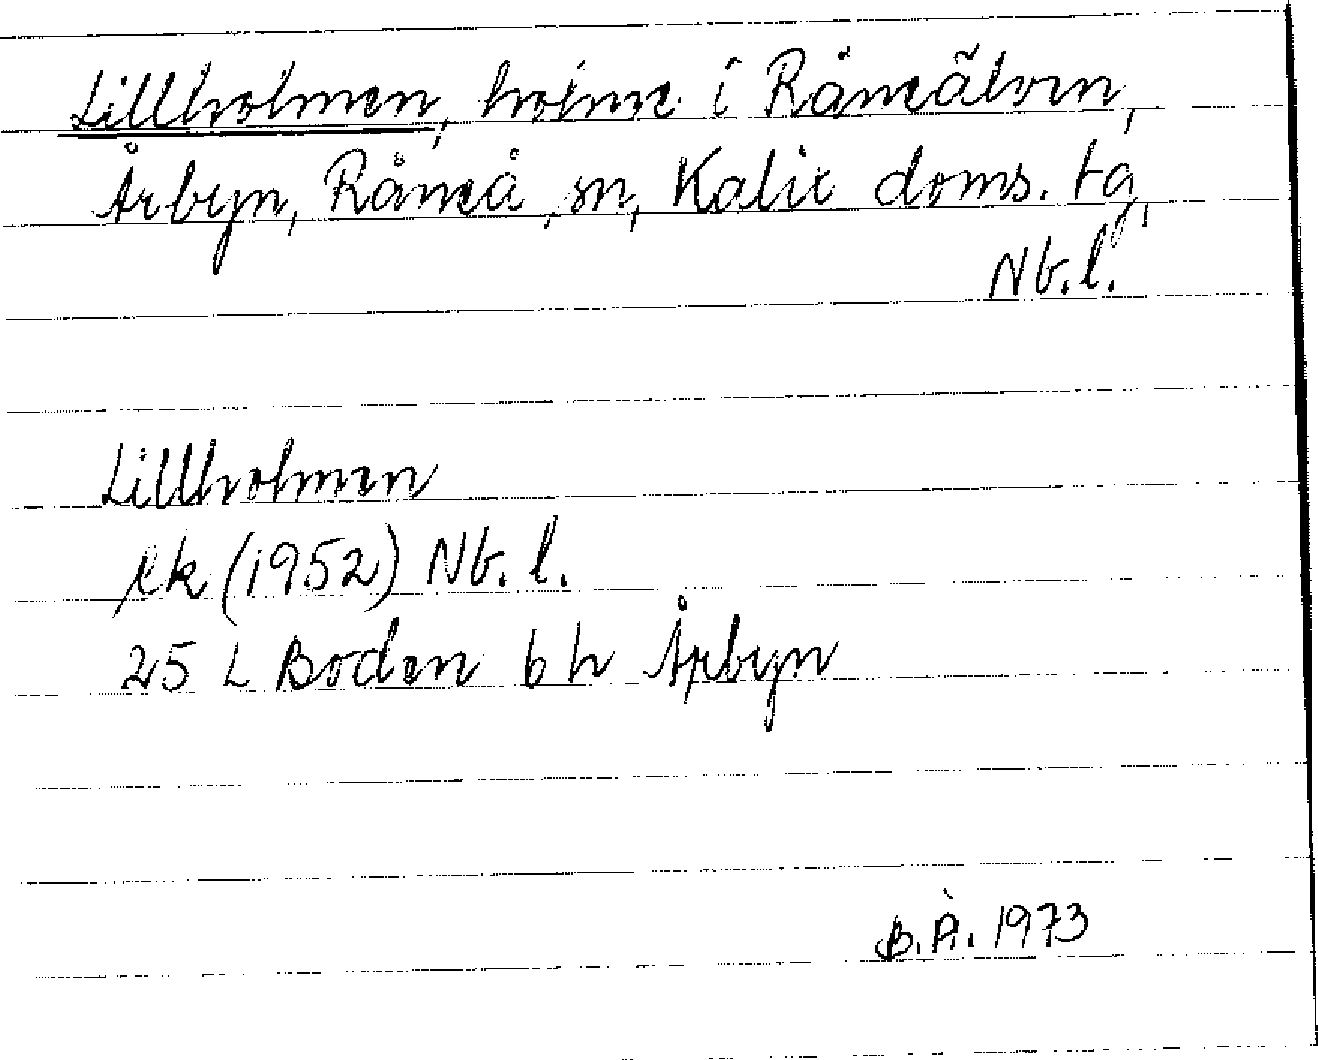 Lillholmen, holme i Råneälven,
Årbyn, Råneå, sn, Kalix doms. tg,
Nb. l.
Lillholmen
ek (1952) Nb. l.
25 L Boden b h Årbyn
B.Å. 1973